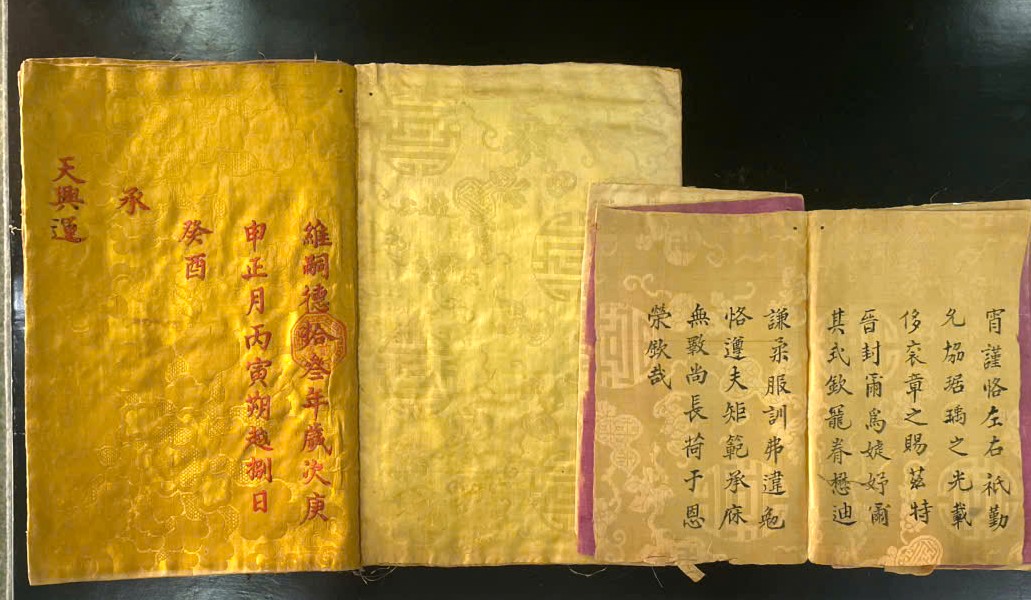 維嗣德拾叁年歲次庚
申正月丙寅朔越捌日
癸酉
承
天興運
宵謹恪左右祇勤
允協琚瑀之光載
侈衮章之賜茲特
晉封爾爲婕妤爾
其式欽寵眷懋迪
謙柔服訓弗違勉
恪遵夫矩範承庥
無斁尚長荷于恩
榮欽哉